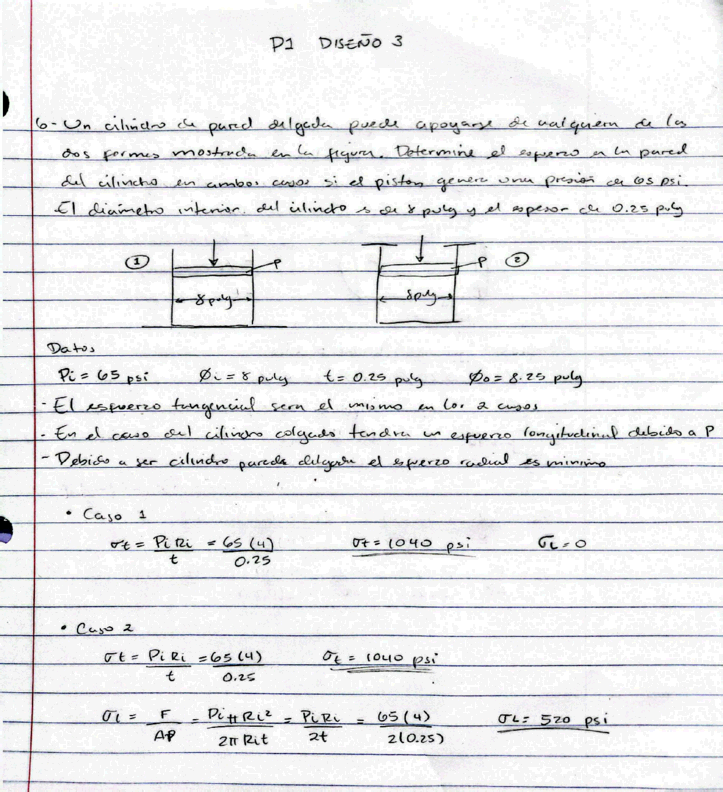 P1 DISEÑO 3
6- Un cilindro de pared delgada puede apoyarse de cualquiera de las
dos formas mostrada en la figura. Determine el esfuerzo en la pared
del cilindro en ambos casos si el piston genera una presión de 65 psi.
El diámetro interior del cilindro es de 8 pulg y el espesor de 0.25 pulg
① P P ②
8 pulg 8 pulg
Datos
Pi = 65 psi Øi = 8 pulg t = 0.25 pulg Øo = 8.25 pulg
- El esfuerzo tangencial sera el mismo en los 2 casos
- En el caso del cilindro colgado tendra un esfuerzo longitudinal debido a P
- Debido a ser cilindro pared delgada el esfuerzo radial es minimo
• Caso 1
σt = PiRi/t = 65(4)/0.25 σt = 1040 psi σL = 0
• Caso 2
σt = PiRi/t = 65(4)/0.25 σt = 1040 psi
σL = F/AP = PiπRi²/2πRit = PiRi/2t = 65(4)/2(0.25) σL = 520 psi